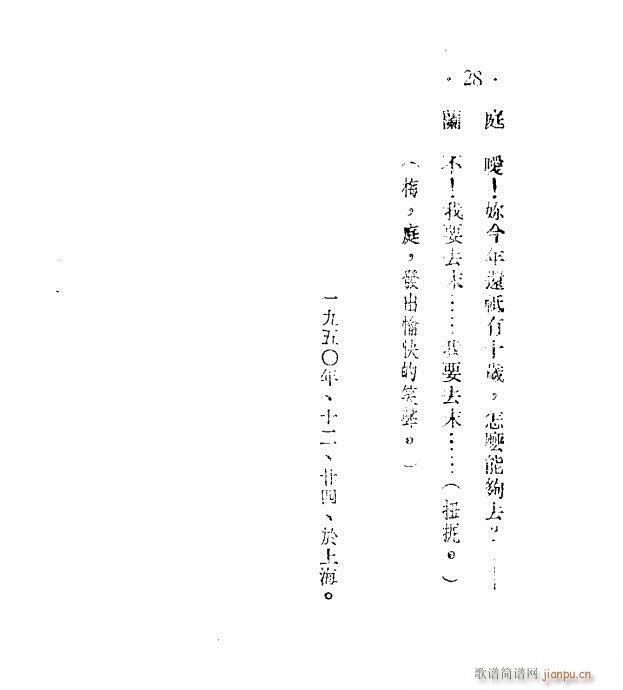 ·28·
庭 噯！妳今年還祇有十歲，怎麼能夠去？——
蘭 不！我要去末……我要去末……（扭捏。）
（梅，庭，發出愉快的笑聲。）
一九五〇年、十二、廿四、於上海。
歌谱简谱网
jianpu.cn